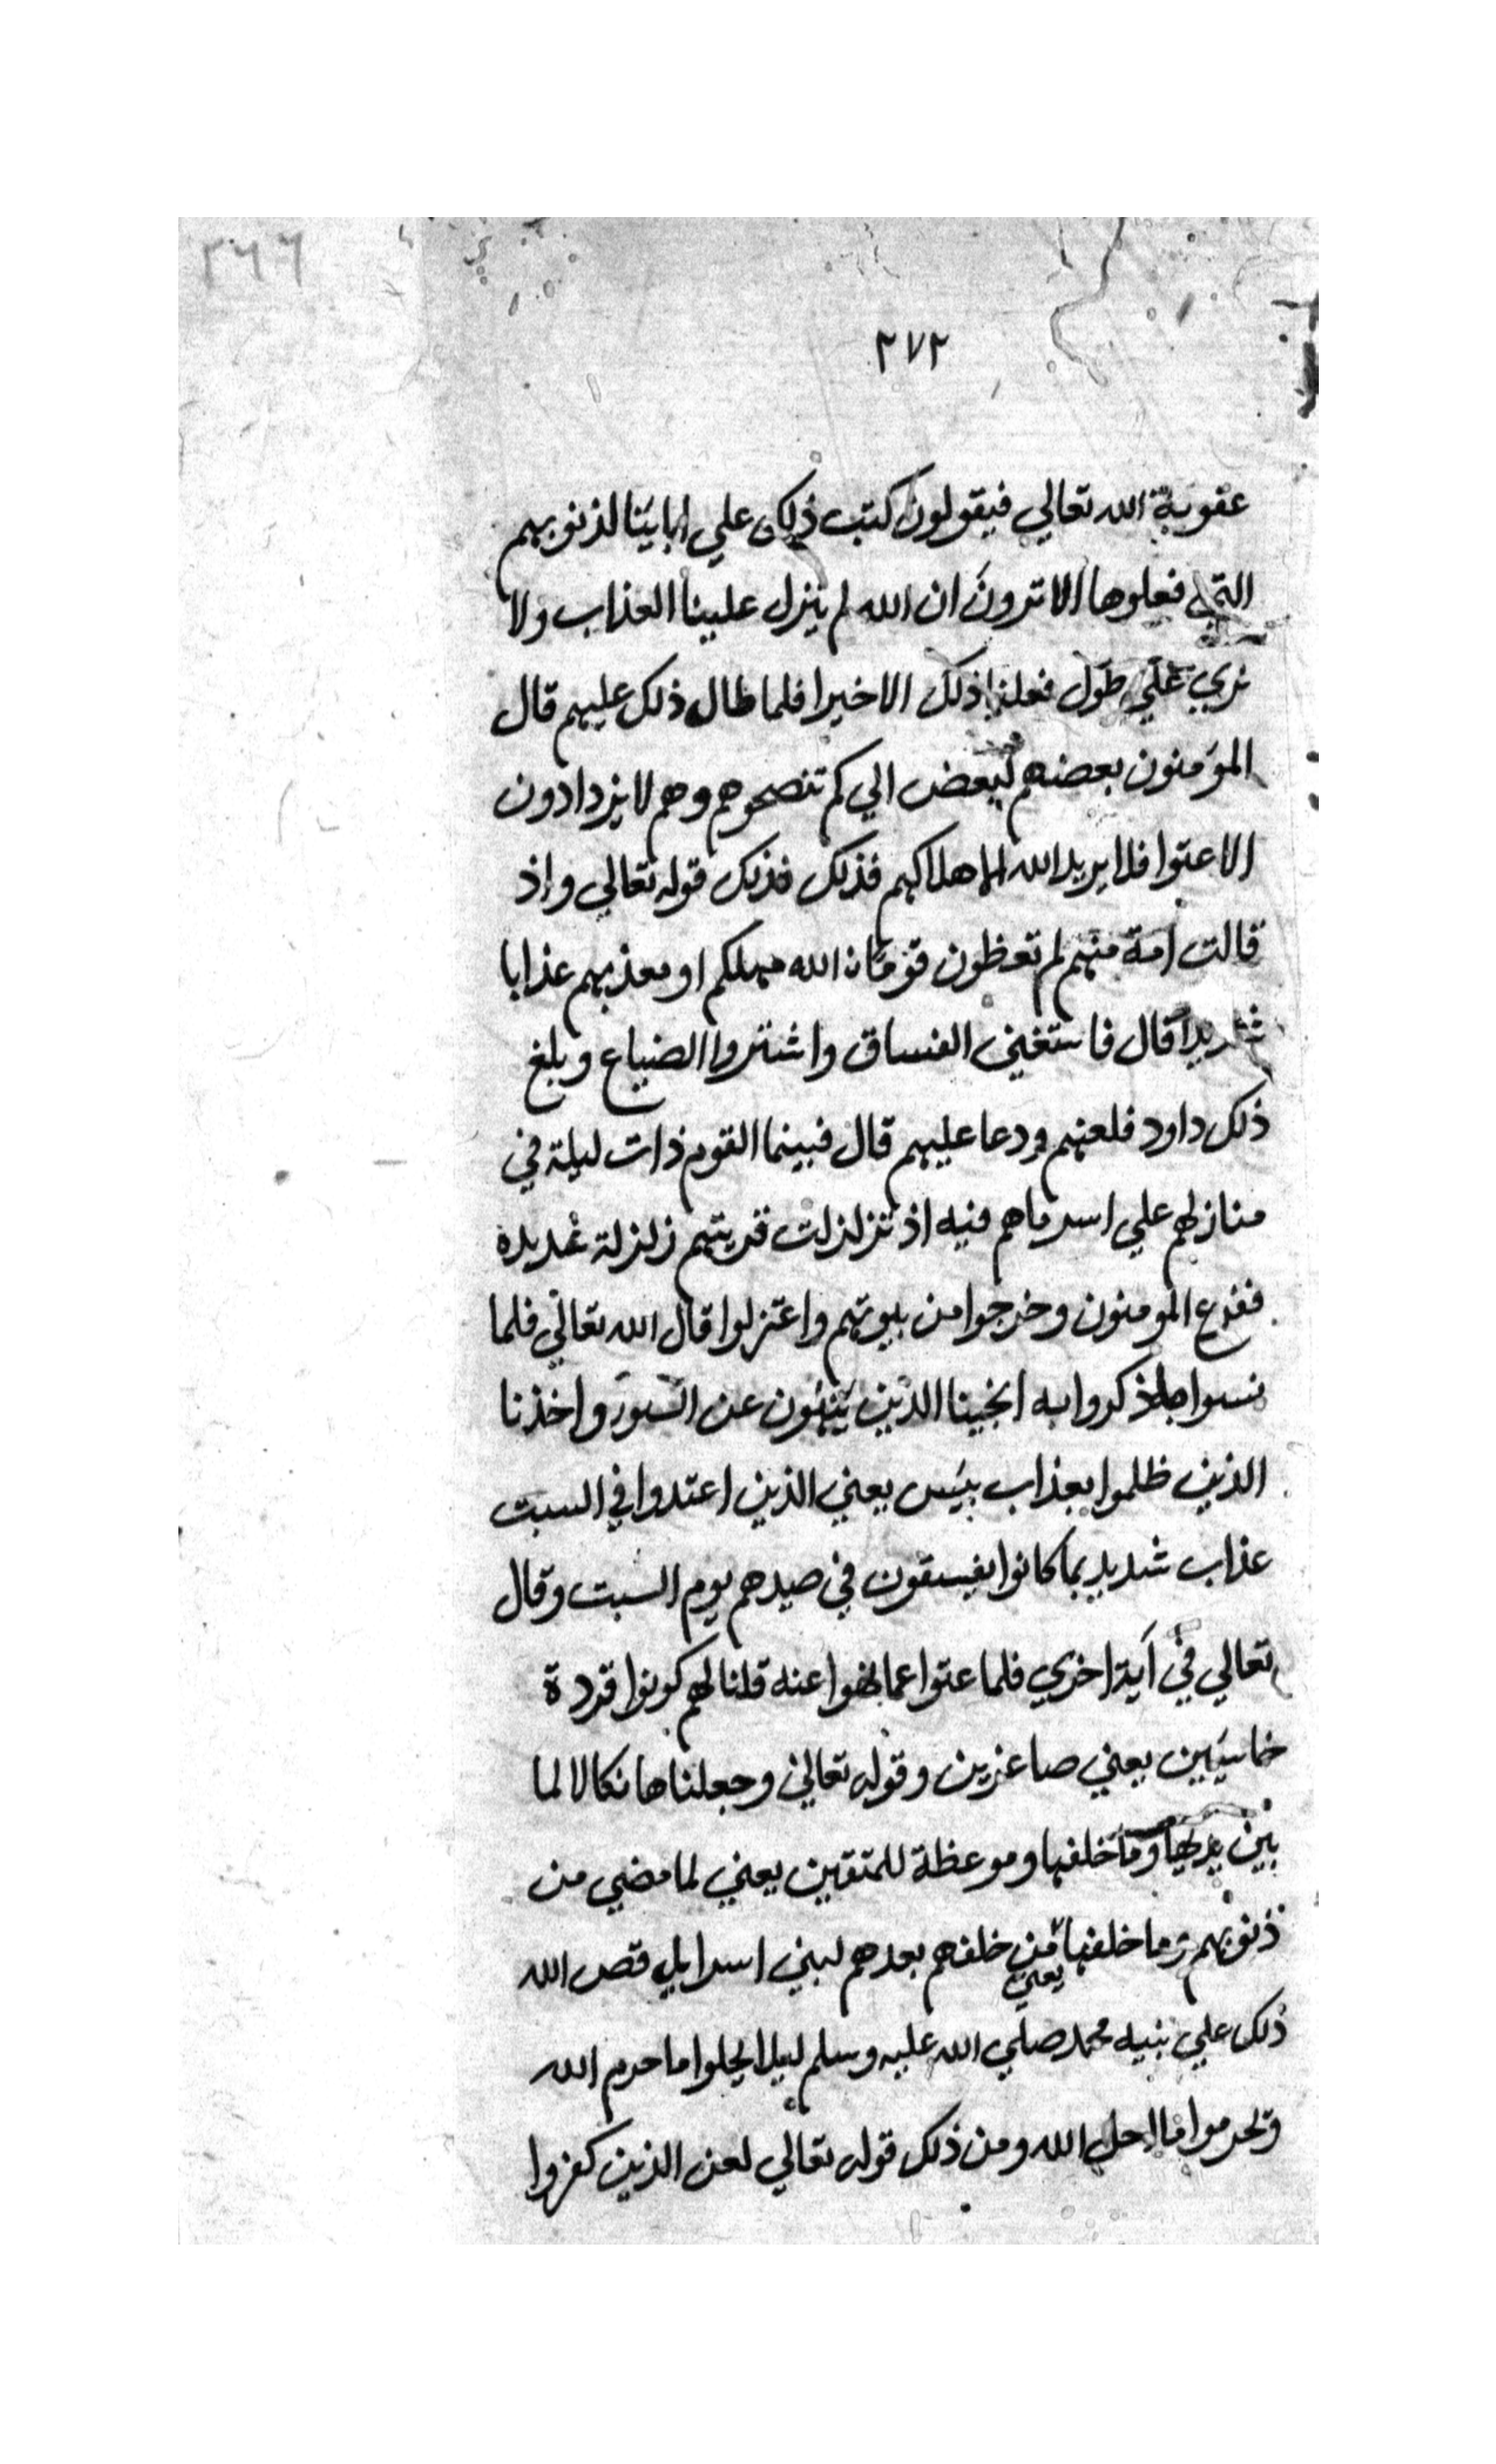 ٢٦٦
٢٧٢
عقوبة الله تعالي فيقولون كتب ذلك علي ابائنا لذنوبهم
التي فعلوها الا ترون ان الله لم ينزل علينا العذاب ولا
نري علي طول فعلنا ذلك الا خيرا فلما طال ذلك عليهم قال
المؤمنون بعضهم لبعض الي كم تنصحوهم وهم لا يزدادون
الا عتوا فلا يريد الله الا هلاكهم فذلك فذلك قوله تعالي واذ
قالت امة منهم لم تعظون قوما ن الله مهلكم او معذبهم عذابا
شديدا قال فاستغني الفساق واشتروا الضياع وبلغ
ذلك داود فلعنهم ودعا عليهم قال فبينما القوم ذات ليلة في
منازلهم علي اسد ماهم فيه اذ تزلزلت قريتهم زلزلة عديدة
ففزع المومنون وخرجوا من بيوتهم واعتزلوا قال الله تعالي فلما
نسوا ما ذكروا به انجينا الذين ينهون عن السوء واخذنا
الذين ظلموا بعذاب بئس يعني الذين اعتدوا في السبت
عذاب شديد بما كانوا يفسقون في صيدهم يوم السبت وقال
تعالي في آية اخري فلما عتوا عما نهوا عنه قلنا لهم كونوا قردة
خاسئين يعني صاغرين وقوله تعالي وجعلناها نكالا لما
بين يديها وما خلفها وموعظة للمتقين يعني لما مضي من
ذنوبهم وما خلفها يعني من خلفهم بعدهم لبني اسرايل قص الله
ذلك علي نبيه محمد صلي الله عليه وسلم ليلا يحلوا ما حرم الله
وتحرموا ما احل الله ومن ذلك قوله تعالي لعن الذين كفروا